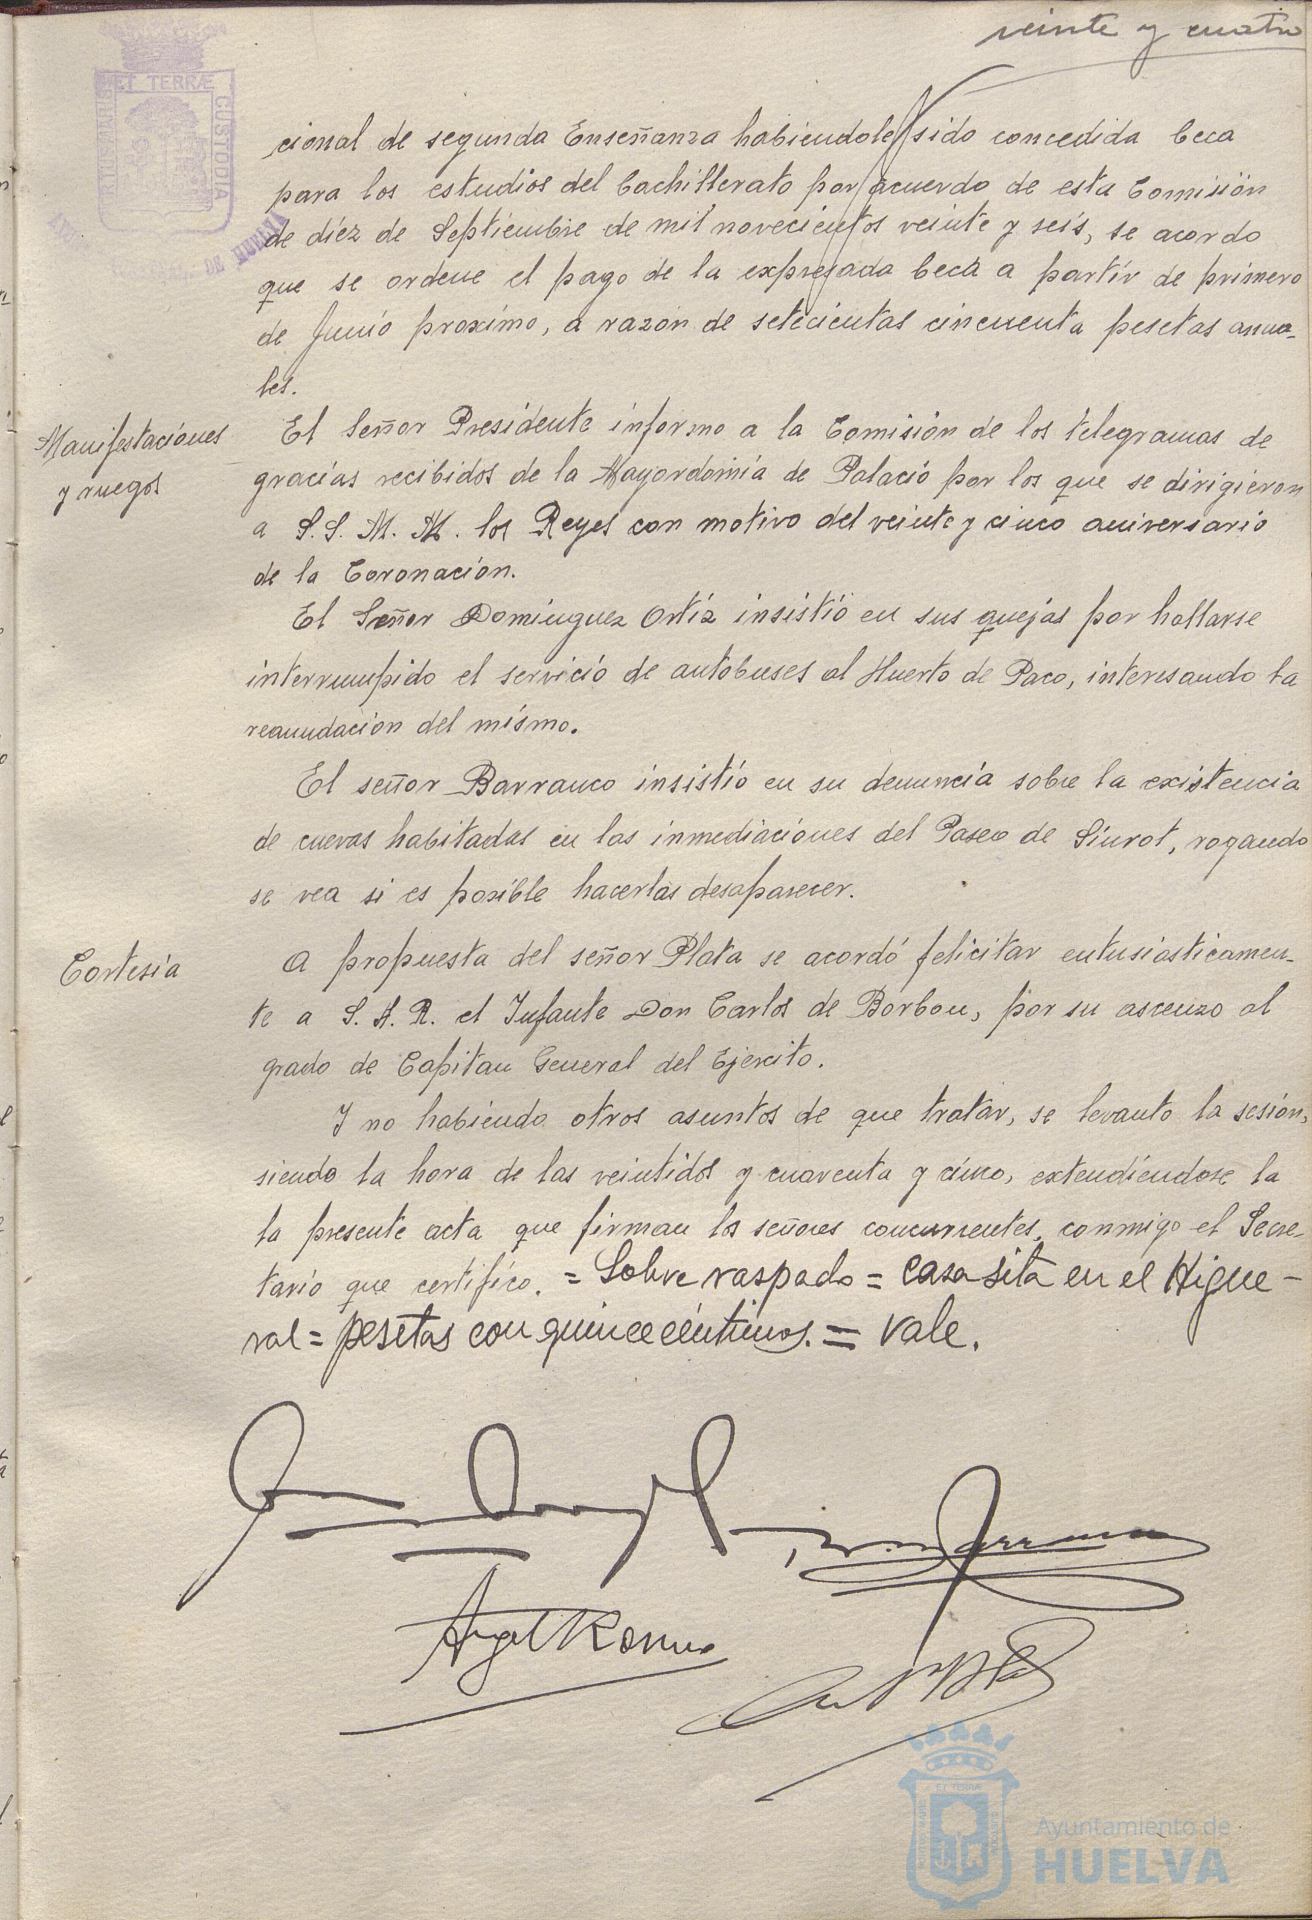 veinte y cuatro
ET TERRÆ
CUSTODIA
DE HUELVA
cional de segunda Enseñanza habiendole sido concedida beca
para los estudios del bachillerato por acuerdo de esta Comisión
de diez de Septiembre de mil novecientos veinte y seis, se acordo
que se ordene el pago de la expresada beca a partir de primero
de Junio proximo, a razón de setecientas cincuenta pesetas anua-
les.
Manifestaciones
y ruegos
El Señor Presidente informo a la Comisión de los telegramas de
gracias recibidos de la Mayordomia de Palacio por los que se dirigieron
a S.S. M. M. los Reyes con motivo del veinte y cinco aniversario
de la Coronación.
El Señor Dominguez Ortiz insistió en sus quejas por hallarse
interrumpido el servicio de autobuses al Huerto de Paco, interesando la
reanudacion del mismo.
El señor Barranco insistió en su denuncia sobre la existencia
de cuevas habitadas en las inmediaciones del Paseo de Siurot, rogando
se vea si es posible hacerlas desaparecer.
Cortesía
A propuesta del señor Plata se acordó felicitar entusiasticamen-
te a S. A. R. el Infante Don Carlos de Borbon, por su ascenzo al
grado de Capitan General del Ejercito.
Y no habiendo otros asuntos de que tratar, se levanto la sesión,
siendo la hora de las veintidos y cuarenta y cinco, extendiendose la
la presente acta que firman los señores concurrentes, conmigo el Secre-
tario que certifico. = Sobre raspado = casa sita en el Higue-
ral = pesetas con quince céntimos. = vale.
Angel Romero
Ayuntamiento de
HUELVA